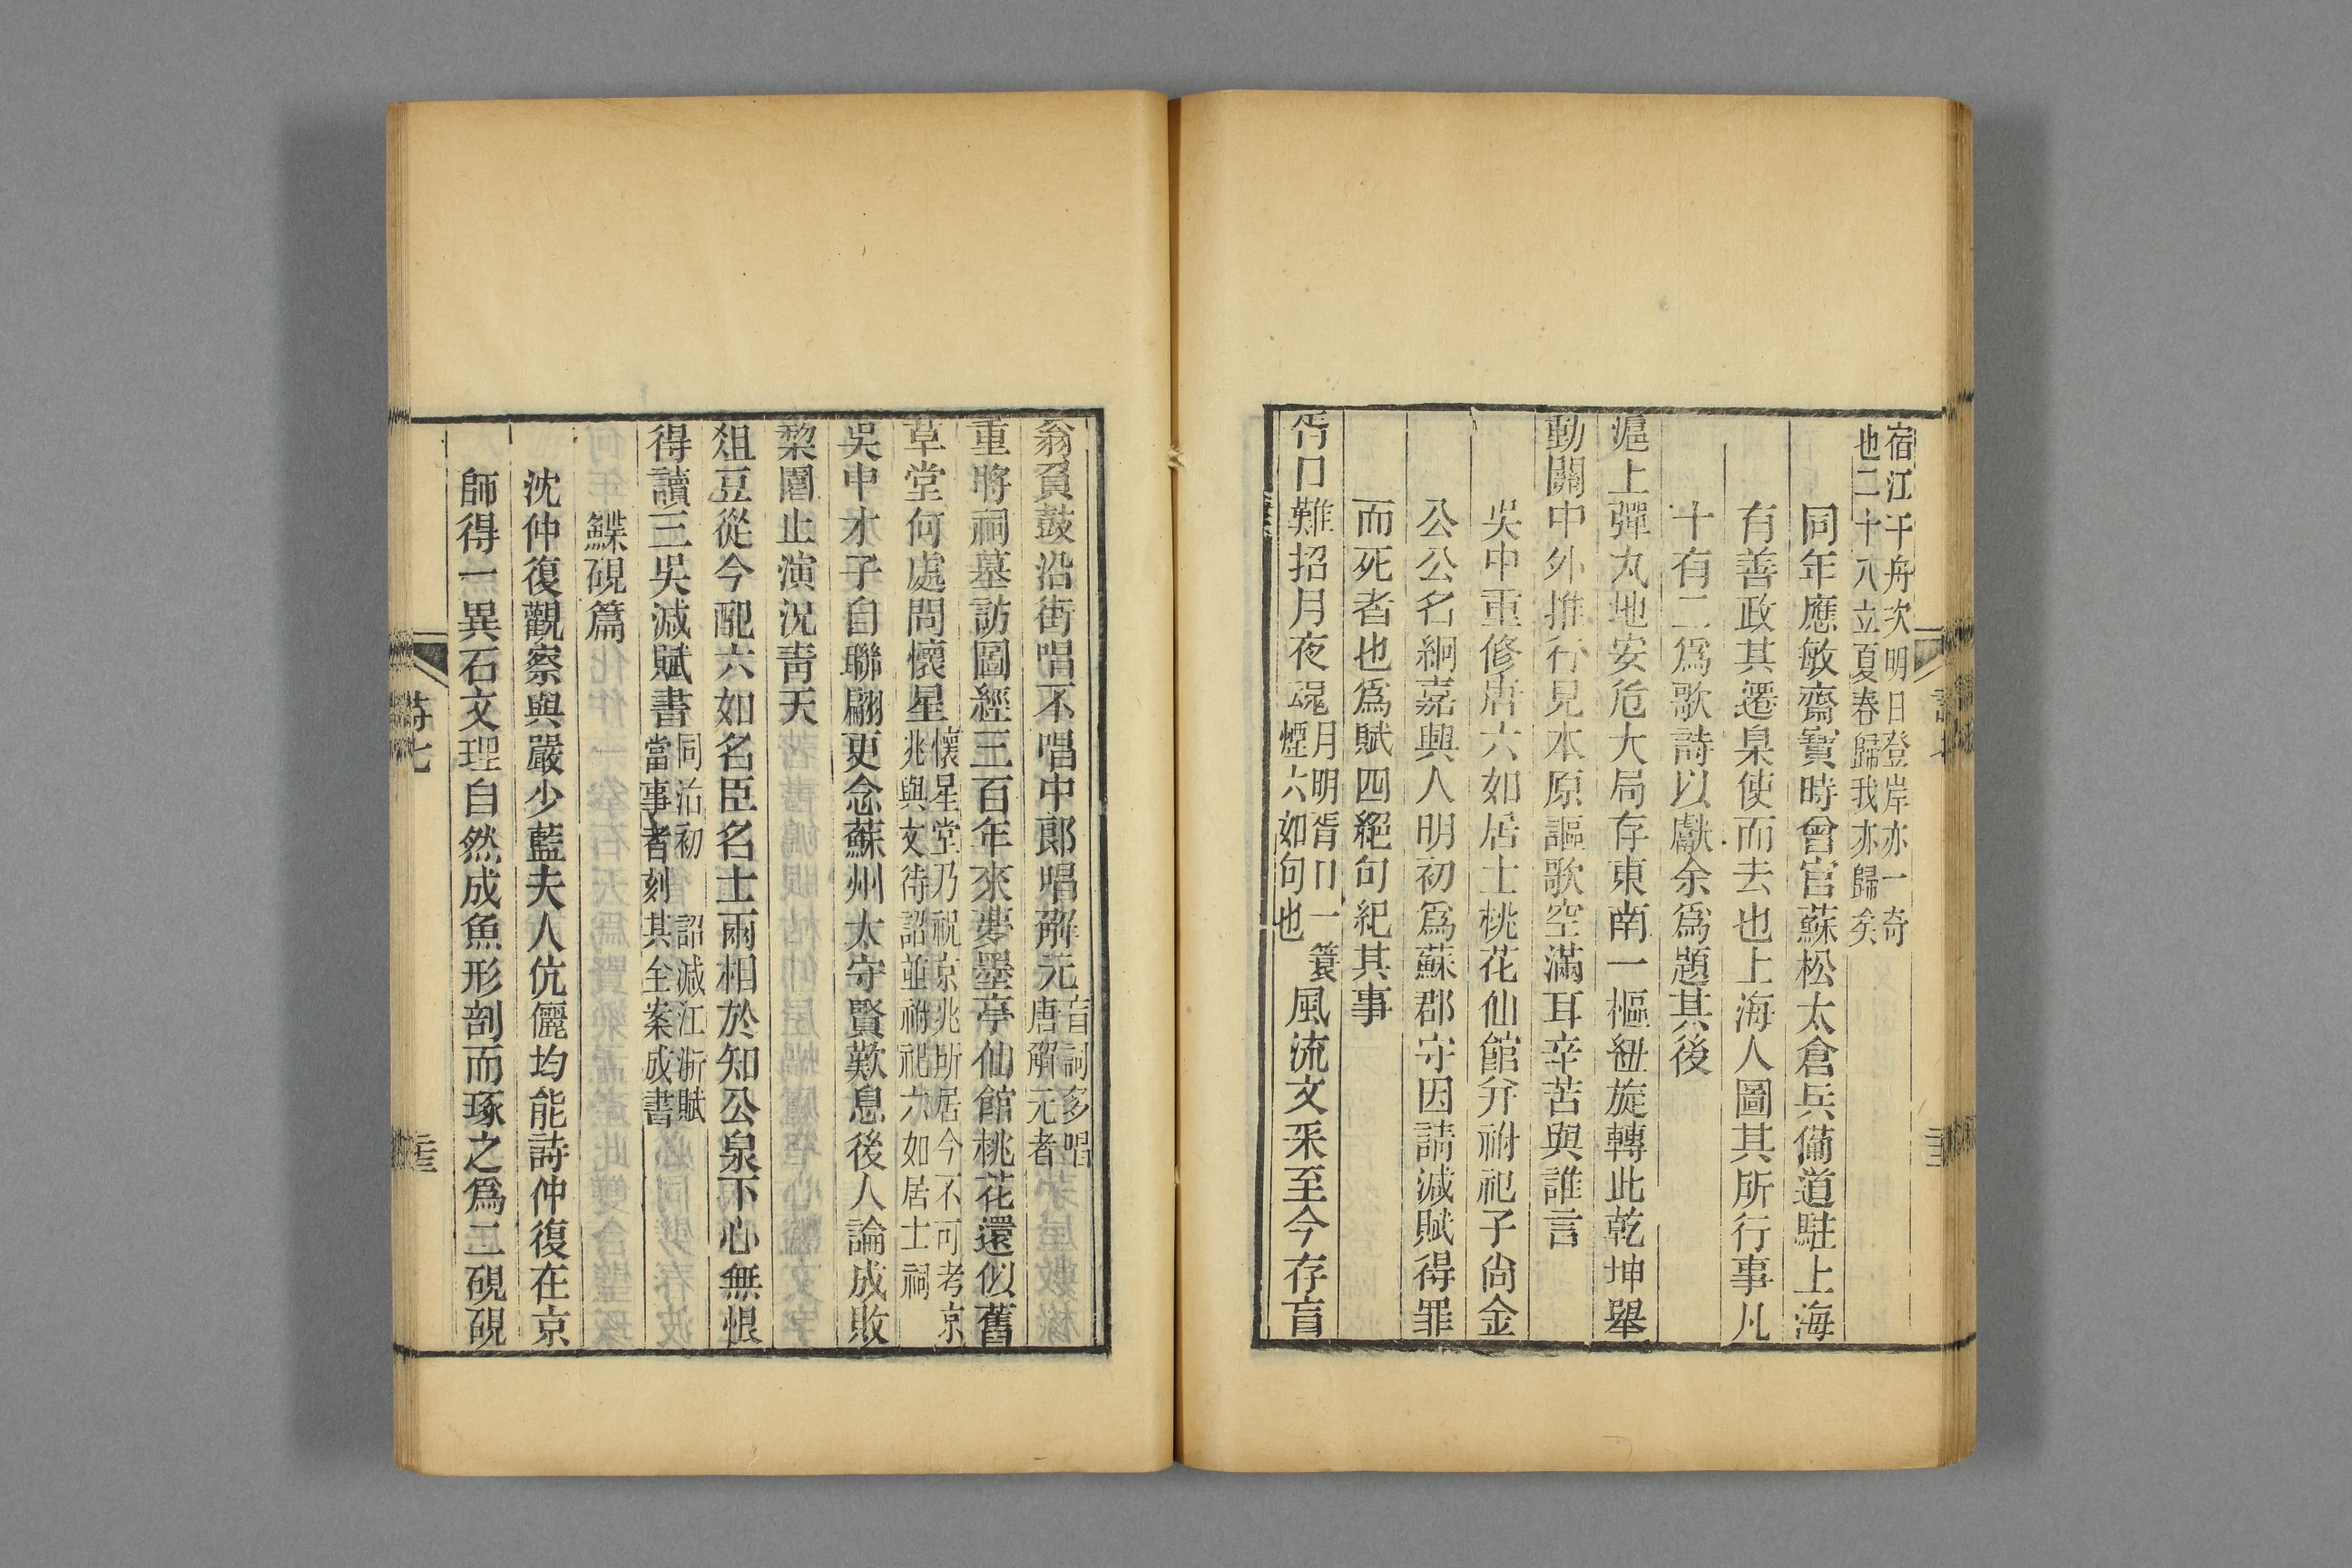 宿江干舟次明日登岸亦一奇
也二十八立夏春歸我亦歸矣
同年應敏齋寶時曾官蘇松太倉兵備道駐上海
有善政其遷臬使而去也上海人圖其所行事凡
十有二爲歌詩以獻余爲題其後
滬上彈丸地安危大局存東南一樞紐旋轉此乾坤舉
動關中外推行見本原謳歌空滿耳辛苦與誰言
吳中重修唐六如居士桃花仙館弁祔祀子尙金
公公名絅嘉興人明初爲蘇郡守因請減賦得罪
而死者也爲賦四絕句紀其事
胥口難招月夜魂月明胥口一簑
煙六如句也風流文采至今存盲
翁負鼓沿街唱不唱中郞唱解元盲詞多唱
唐解元者
重將祠墓訪圖經三百年來夢墨亭仙館桃花還似舊
草堂何處問懷星懷星堂乃祝京兆所居今不可考京
兆與文待詔並祔祀六如居士祠
吳中才子自聯翩更念蘇州太守賢歎息後人論成敗
棃園止演況靑天
俎豆從今配六如名臣名士兩相於知公泉下心無恨
得讀三吳減賦書同治初 詔減江浙賦
當事者刻其全案成書
鰈硯篇
沈仲復觀察與嚴少藍夫人伉儷均能詩仲復在京
師得一異石文理自然成魚形剖而琢之爲二硯硯
詩七